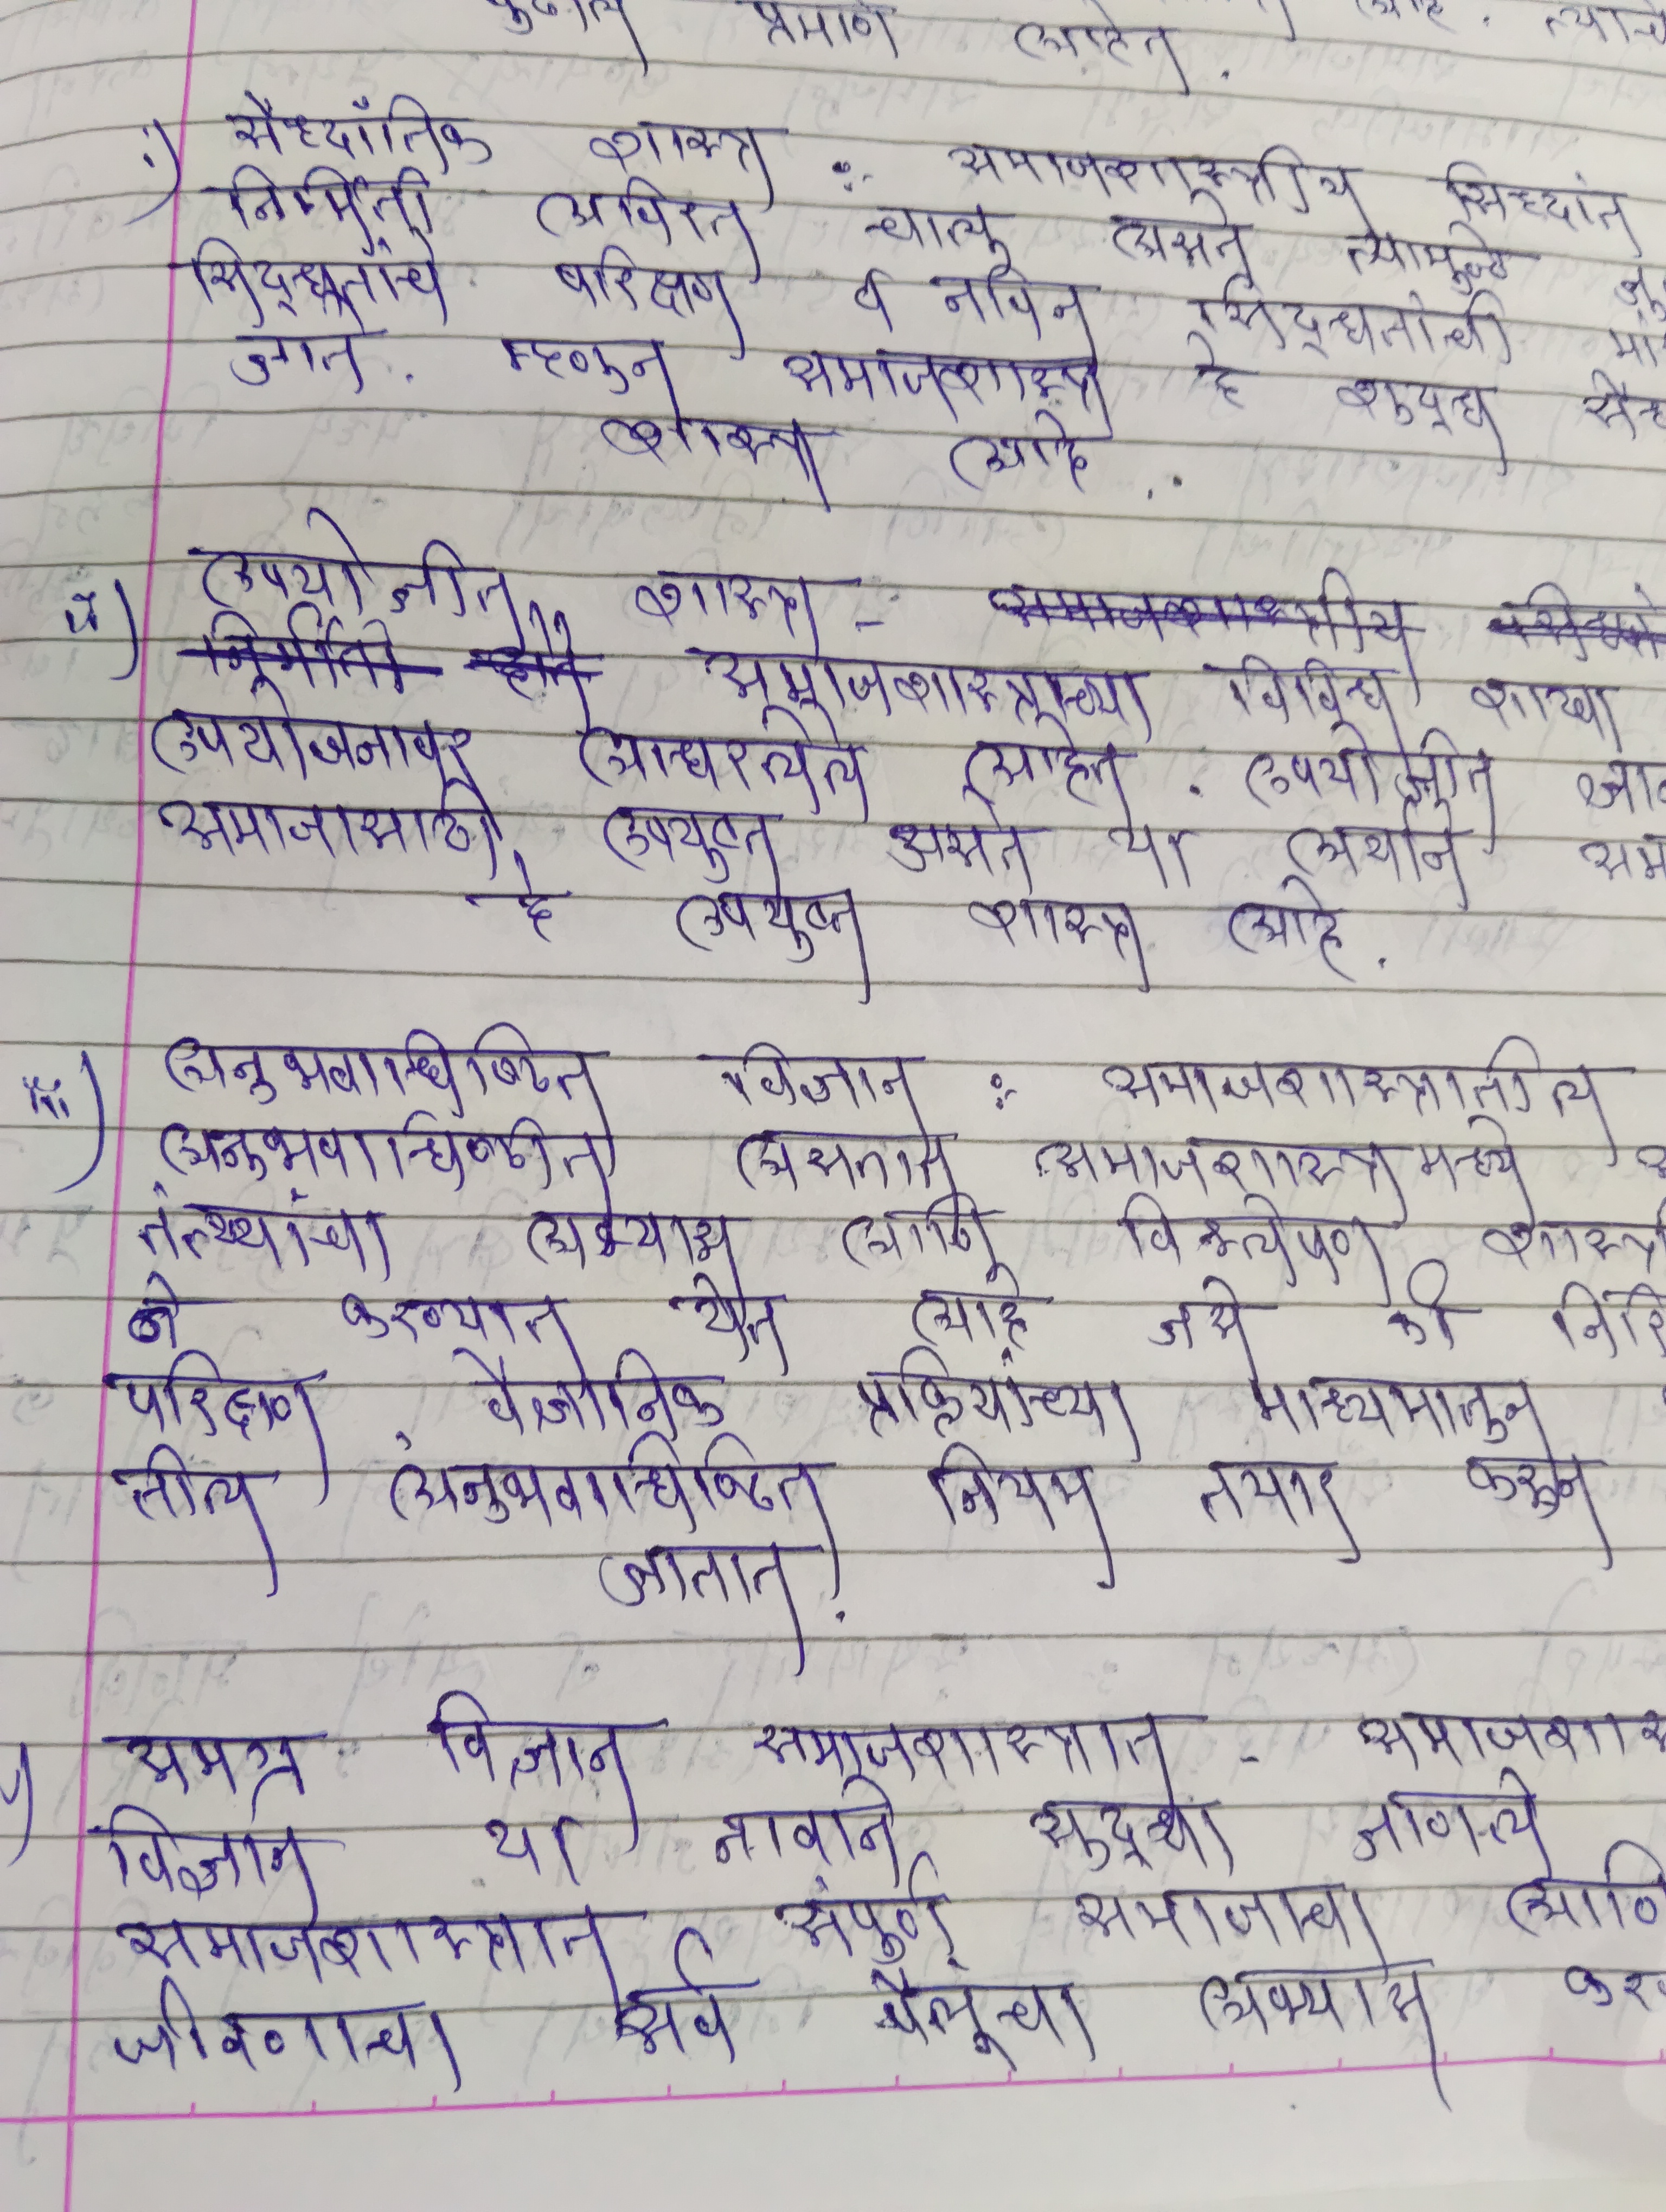 प्रमाणे आहेत.
i) सैध्दांतिक शास्त्र :- समाजशास्त्रीय सिध्दांत
निर्मिती अविरत चालू असते त्यामुळे
सिद्धतांचे परिक्षण व नविन सिद्धतांची
जाते. म्हणुन समाजशास्त्र हे शुद्ध
शास्त्र आहे.
ii) उपयोजीत शास्त्र -
समाजशास्त्राच्या विविध शाखा
उपयोजनावर आधारलेले आहेत. उपयोजीत
समाजासाठी उपयुक्त असते या अर्थाने
हे उपयुक्त शास्त्र आहे.
iii) अनुभवाधिष्ठित विज्ञान :- समाजशास्त्रातील
अनुभवाधिष्ठीत असतात समाजशास्त्रामध्ये
तंत्थ्यांचा अभ्यास आणि विश्लेषण
ने करण्यात येत आहे जसे की
परिक्षण, वैज्ञानिक प्रक्रियांच्या माध्यमातुन
तील अनुभवाधिष्ठित नियम तयार करून
जातात.
समग्र विज्ञान समाजशास्त्रात -
विज्ञान या नावाने सुद्धा जाणले
समाजशास्त्रात संपुर्ण समाजाचा
जीवणाचा सर्व पैलूचा अभ्यास